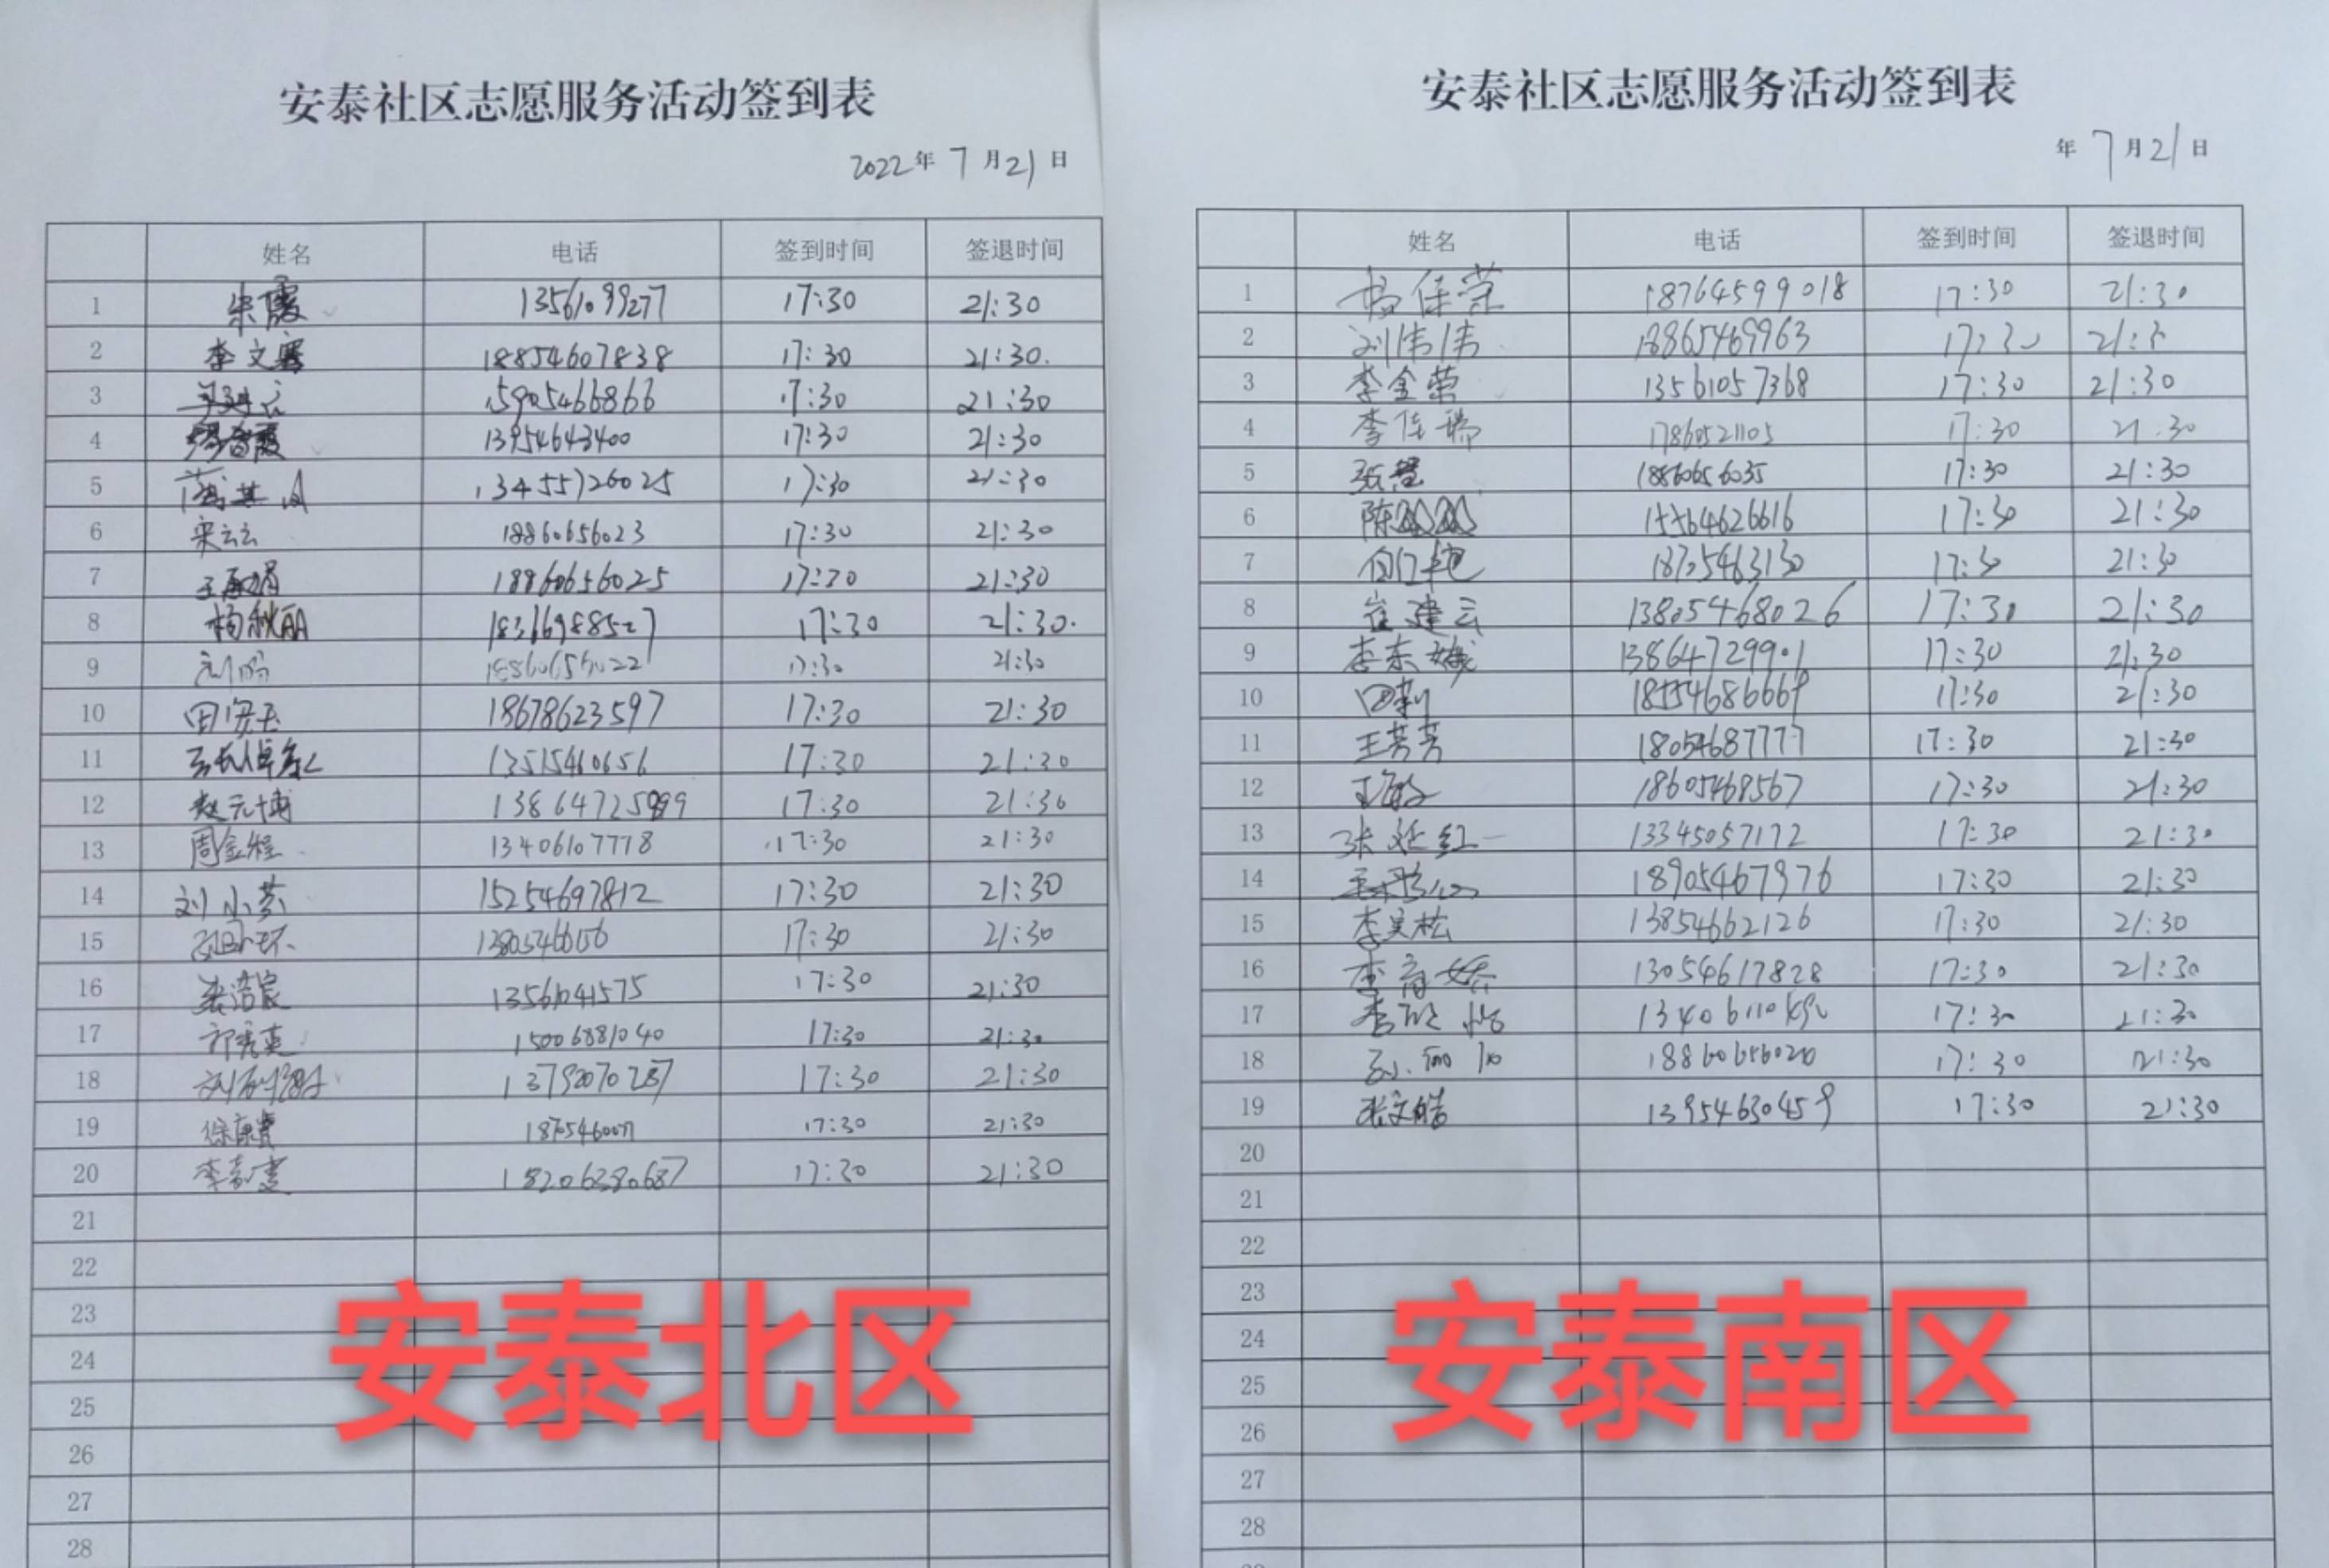 安泰社区志愿服务活动签到表
2022年7月21日
姓名 电话 签到时间 签退时间
1 朱霞 13561099277 17:30 21:30
2 李文 18854607838 17:30 21:30.
3 15905466866 17:30 21:30
4 霞 13954643400 17:30 21:30
5 13455726025 17:30 21:30
6 宋云云 18860656023 17:30 21:30
7 王 娟 18860656025 17:30 21:30
8 杨秋丽 18316988527 17:30 21:30.
9 18860656022 17:30 21:30
10 田 玉 18678623597 17:30 21:30
11 13515460656 17:30 21:30
12 赵元博 13864725099 17:30 21:30
13 周金 13406107778 17:30 21:30
14 刘小芬 15254697812 17:30 21:30
15 环 17:30 21:30
16 13561041575 17:30 21:30
17 郭秀英 15006881040 17:30 21:30
18 刘 13792070287 17:30 21:30
19 徐康 17:30 21:30
20 李 18206380687 17:30 21:30
21
22
23
24
25
26
27
28
安泰北区
安泰社区志愿服务活动签到表
年7月21日
姓名 电话 签到时间 签退时间
1 杨佳荣 18764599018 17:30 21:30
2 刘伟伟 18865469963 17:30
3 李金荣 13561057368 17:30 21:30
4 李佳瑞 17860521105 17:30 21:30
5 张 18860656035 17:30 21:30
6 陈 15564626616 17:30 21:30
7 17:30 21:30
8 崔建云 13805468026 17:30 21:30
9 李东娥 13864729901 17:30 21:30
10 田莉 18554686669 17:30 21:30
11 王芳芳 18054687777 17:30 21:30
12 王敏 18605468567 17:30 21:30
13 张延红 13345057172 17:30 21:30
14 18905467976 17:30 21:30
15 李昊松 13854662126 17:30 21:30
16 李 娇 13054617828 17:30 21:30
17 李 17:30 21:30
18 18860656020 17:30 21:30
19 张文皓 13954630459 17:30 21:30
20
21
22
23
24
25
26
27
28
安泰南区